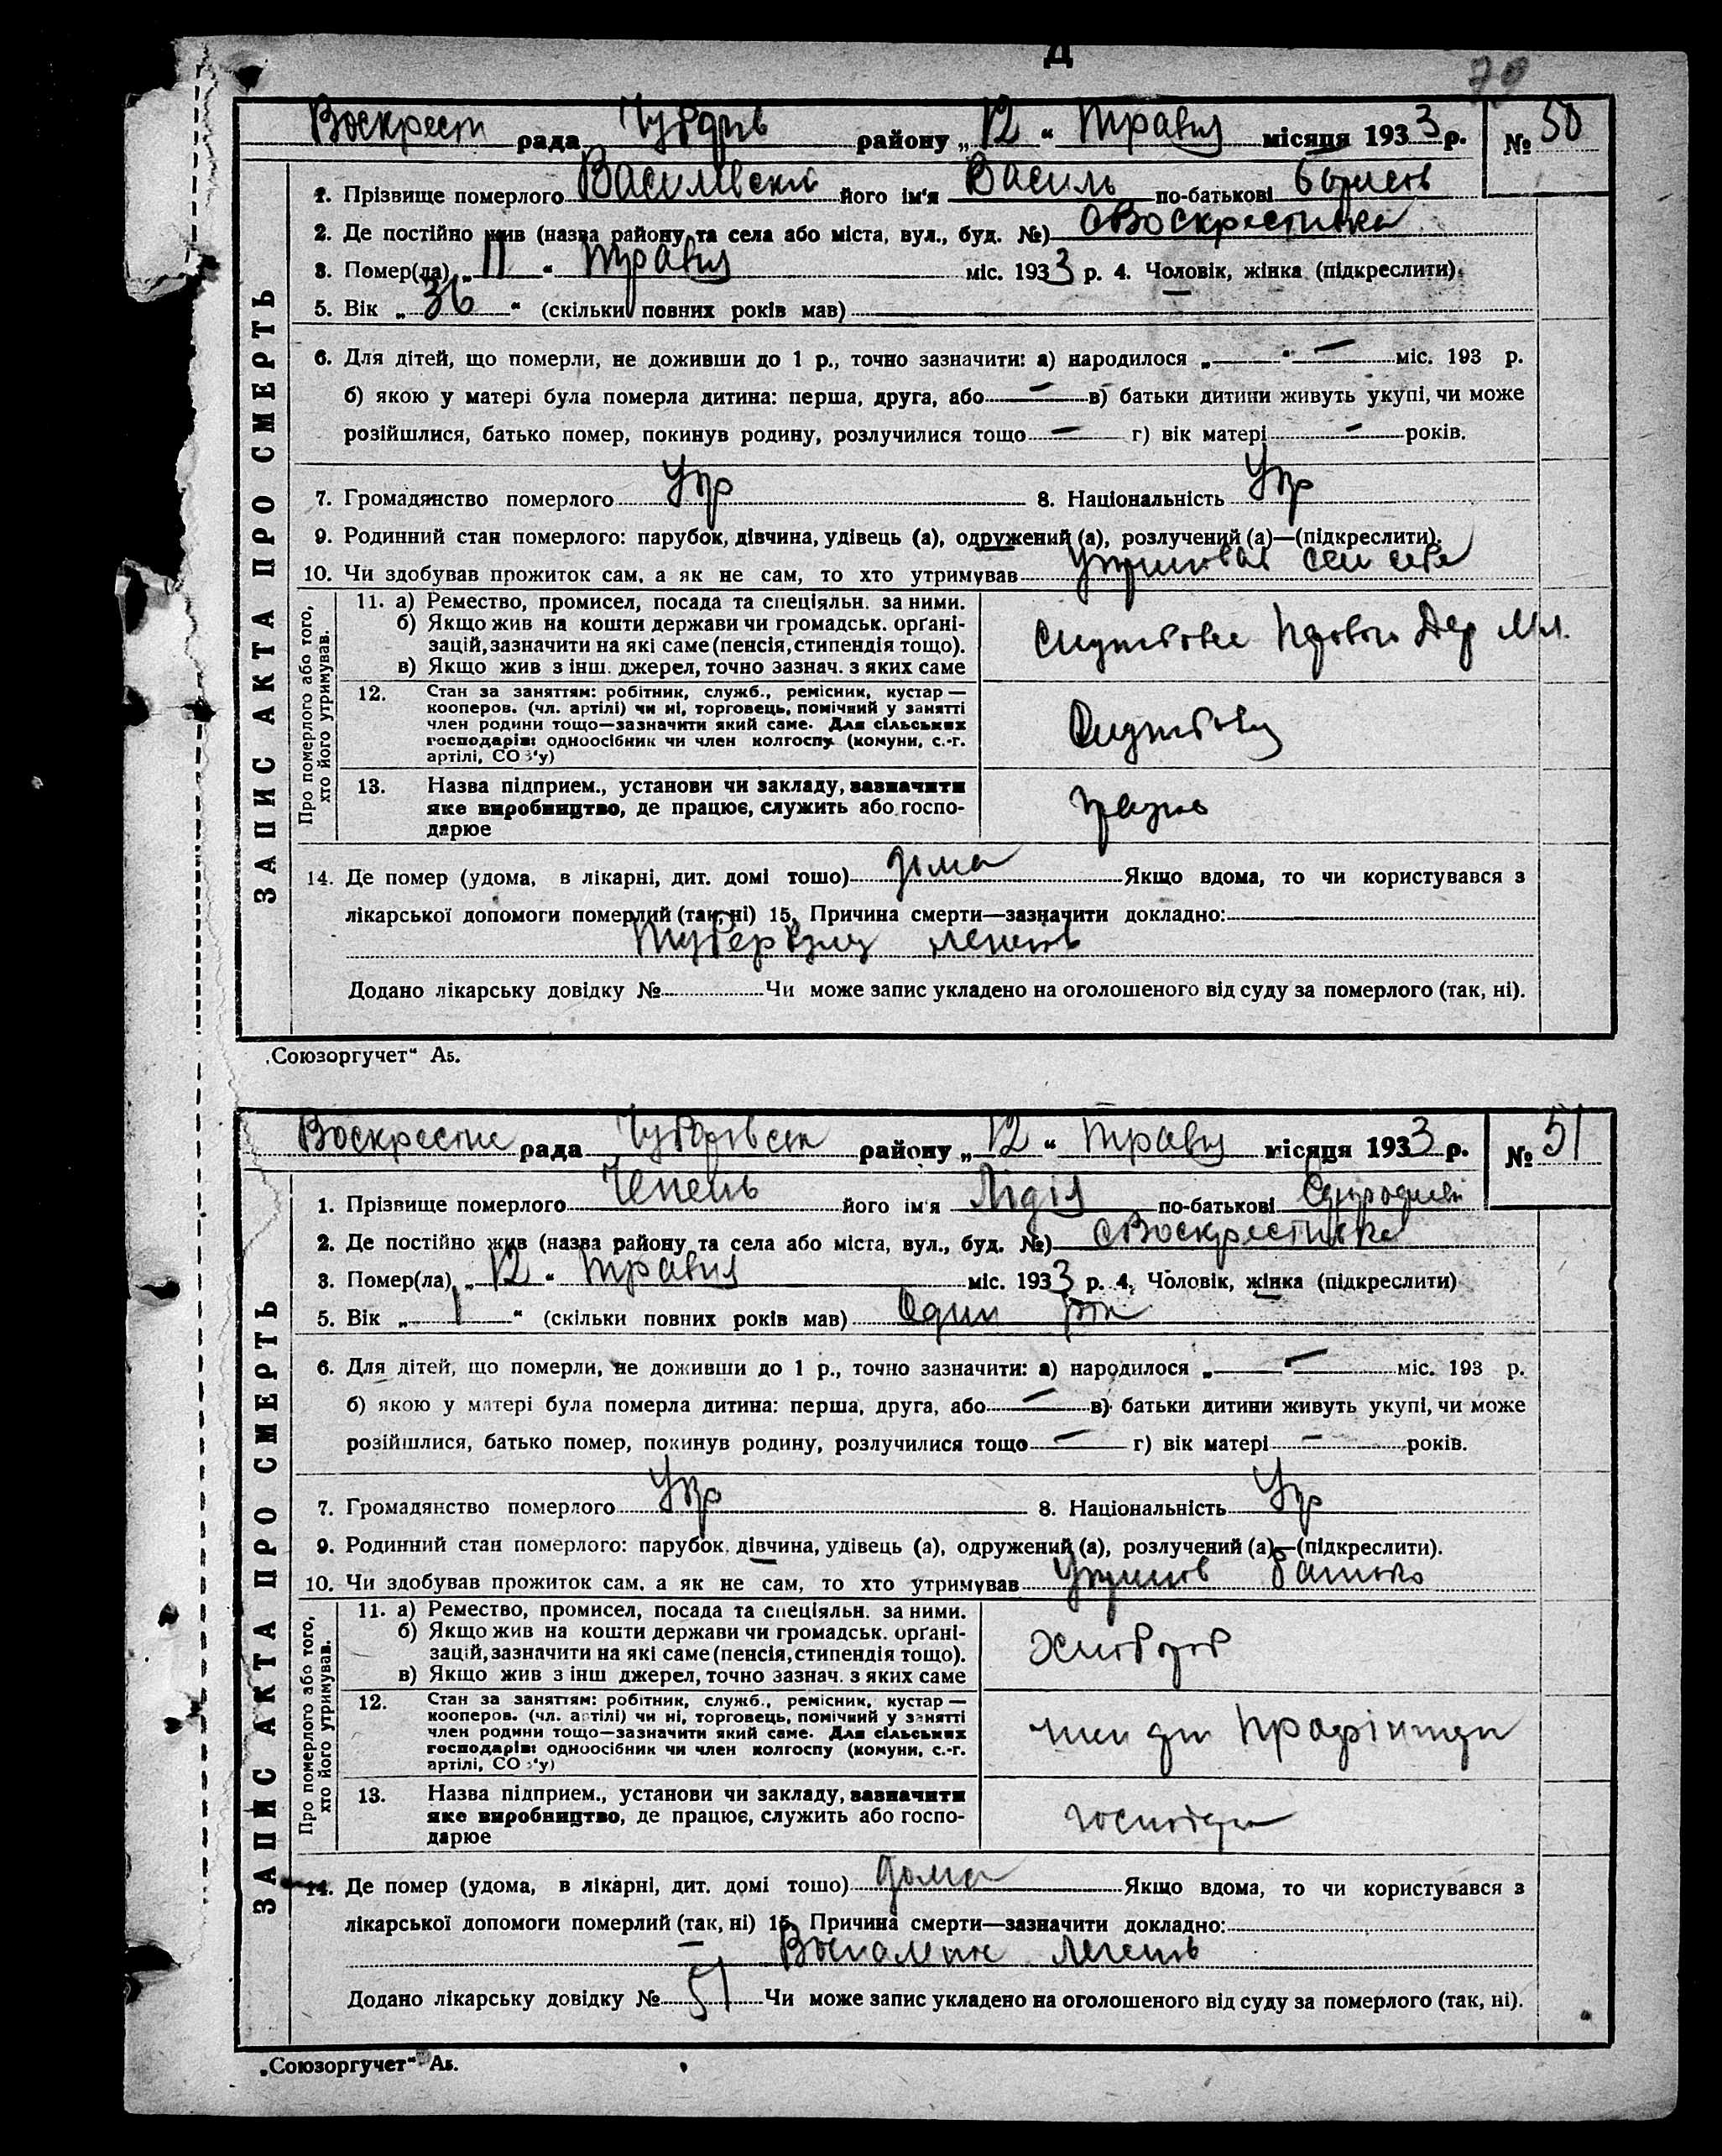 70
Воскресн рада Чубарів району „12“ Травня місяця 1933 р. № 50
1. Прізвище померлого Василівский його ім'я Василь по-батькові
2. Де постійно жив (назва району та села або міста, вул., буд. №) с Воскрестивка
3. Помер(ла) „11“ Травня міс. 1933 р. 4. Чоловік, жінка (підкреслити)
5. Вік „36“ (скільки повних років мав)
6. Для дітей, що померли, не доживши до 1 р., точно зазначити: а) народилося „—“ — міс. 193 р.
б) якою у матері була померла дитина: перша, друга, або — в) батьки дитини живуть укупі, чи може
розійшлися, батько помер, покинув родину, розлучилися тощо — г) вік матері — років.
7. Громадянство померлого Укр 8. Національність Укр
9. Родинний стан померлого: парубок, дівчина, удівець (а), одружений (а), розлучений (а)—(підкреслити).
10. Чи здобував прожиток сам, а як не сам, то хто утримував сам себе
ЗАПИС АКТА ПРО СМЕРТЬ
Про померлого або того, хто його утримував.
11. а) Ремество, промисел, посада та спеціяльн. за ними.
б) Якщо жив на кошти держави чи громадськ. орґані-
зацій, зазначити на які саме (пенсія, стипендія тощо).
в) Якщо жив з інш. джерел, точно зазнач. з яких саме
12. Стан за заняттям: робітник, служб., ремісник, кустар —
кооперов. (чл. артілі) чи ні, торговець, помічний у занятті
член родини тощо—зазначити який саме. Для сільських
господарів: одноосібник чи член колгоспу (комуни, с.-г.
артілі, СОЗ'у)
13. Назва підприєм., установи чи закладу, зазначити
яке виробництво, де працює, служить або госпо-
дарює
14. Де помер (удома, в лікарні, дит. домі тощо) дома Якщо вдома, то чи користувався з
лікарської допомоги померлий (так, ні) 15. Причина смерти—зазначити докладно:
Туберкулез легенів
Додано лікарську довідку № Чи може запис укладено на оголошеного від суду за померлого (так, ні).
„Союзоргучет“ А5.
Воскресне рада Чубарівськ району „12“ Травня місяця 1933 р. № 51
1. Прізвище померлого Чепель його ім'я Лідія по-батькові
2. Де постійно жив (назва району та села або міста, вул., буд. №) с Воскрестивка
3. Помер(ла) „12“ Травня міс. 1933 р. 4. Чоловік, жінка (підкреслити)
5. Вік „1“ (скільки повних років мав) Один рік
6. Для дітей, що померли, не доживши до 1 р., точно зазначити: а) народилося „—“ — міс. 193 р.
б) якою у матері була померла дитина: перша, друга, або — в) батьки дитини живуть укупі, чи може
розійшлися, батько помер, покинув родину, розлучилися тощо — г) вік матері — років.
7. Громадянство померлого Укр 8. Національність Укр
9. Родинний стан померлого: парубок, дівчина, удівець (а), одружений (а), розлучений (а)—(підкреслити).
10. Чи здобував прожиток сам, а як не сам, то хто утримував батько
ЗАПИС АКТА ПРО СМЕРТЬ
Про померлого або того, хто його утримував.
11. а) Ремество, промисел, посада та спеціяльн. за ними.
б) Якщо жив на кошти держави чи громадськ. орґані-
зацій, зазначити на які саме (пенсія, стипендія тощо).
в) Якщо жив з інш джерел, точно зазнач. з яких саме
Хлебороб
12. Стан за заняттям: робітник, служб., ремісник, кустар —
кооперов. (чл. артілі) чи ні, торговець, помічний у занятті
член родини тощо—зазначити який саме. Для сільських
господарів: одноосібник чи член колгоспу (комуни, с.-г.
артілі, СОЗ'у)
13. Назва підприєм., установи чи закладу, зазначити
яке виробництво, де працює, служить або госпо-
дарює
14. Де помер (удома, в лікарні, дит. домі тощо) дома Якщо вдома, то чи користувався з
лікарської допомоги померлий (так, ні) 15. Причина смерти—зазначити докладно:
легенів
Додано лікарську довідку № 51 Чи може запис укладено на оголошеного від суду за померлого (так, ні).
„Союзоргучет“ А5.